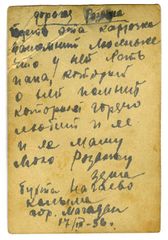 дорогая Розочка
Пусть эта карточка
напомнит Люленьке
что у ней есть
папа, который
о ней помнит
который горячо
любит и ее
и ее машу
мою Розочку
Зяма
Бухта Нагаево
Колыма
гор. Магадан
17/III-36г.